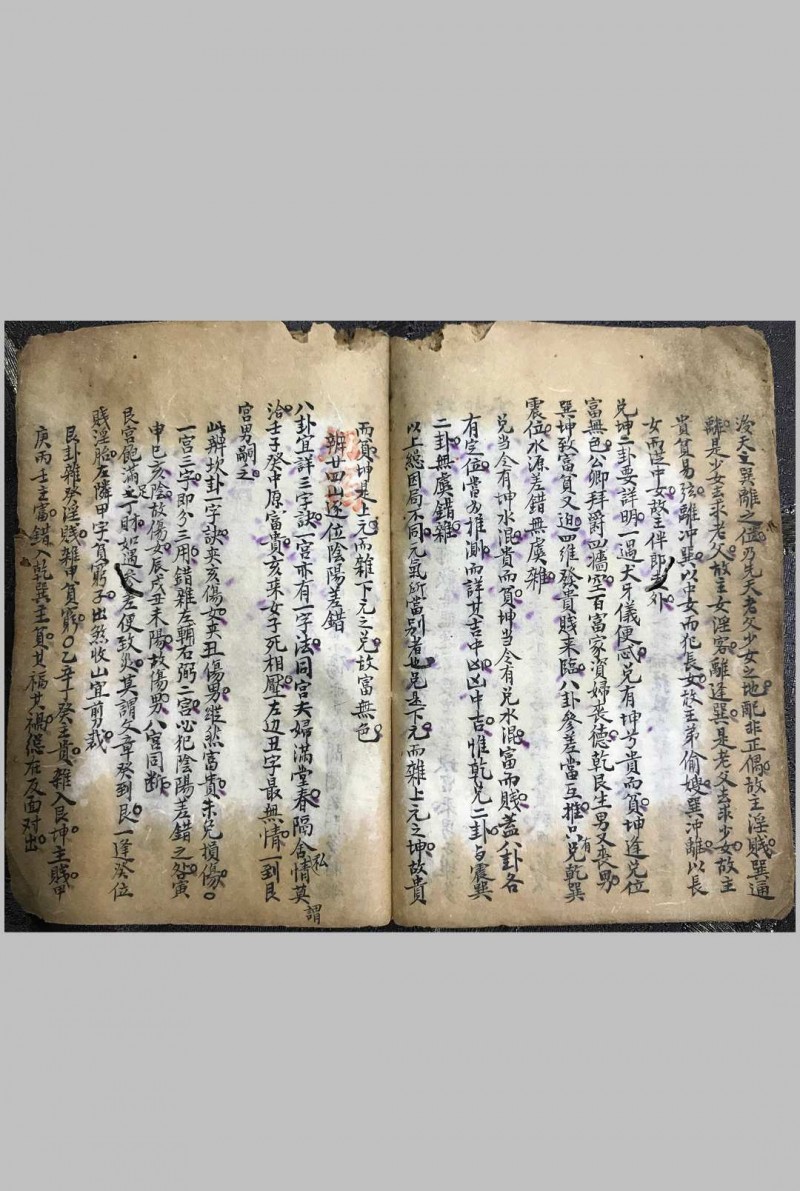 後天主巽離之位乃先天老父少女之地配非正偶故主淫賤巽通
離是少女去求老父故主女淫客離逢巽是老父去求少女故主
貴貧易弦離冲巽以中女而犯長女故主弟偷嫂巽冲離以長
女而亡中女故主伴郎者外
兌坤二卦要詳明一過犬牙儀便感兌有坤兮貴而貧坤逢兌位
富無色公卿拜爵四墻空百富家資婦喪德乾艮生男又喪男
巽坤致富貧又迫四維發貴賤来臨八卦參差當互推只有兌乾巽
震位水源差錯無虞雜
兌當令有坤水混貴而貧坤當令有兌水混富而賤蓋八卦各
有定位當為推測而詳其吉中凶凶中吉惟乾兌二卦与震巽
二卦無虞錯雜
以上總因局不同元氣所當别者也兌是下元而雜上元之坤故貴
而貧坤是上元而雜下元之兌故富無色
辨廿四山逐位陰陽差錯
八卦宜詳三字訣一宮亦有一字法同宮夫婦滿堂春隔舍私情莫謂
洽壬子癸中原富貴亥来女子死相壓左边丑字最無情一到艮
宮男嗣乏
此辨坎卦一字訣夾亥傷女夾丑傷男雖然富貴未免損傷
一宮三字即分三用錯雜左輔右弼二宮必犯陰陽差錯之咎寅
申巳亥陰故傷女辰戌丑未陽故傷男八宮同断
艮宮飽滿足丁財如遇參差便致災莫謂文章癸到艮一逢癸位
賤淫胎左隣甲字貧窮子出煞收山宜剪裁
艮卦雜癸淫賤雜甲貧窮〇乙辛丁癸主貴雜入艮坤主賤甲
庚丙壬主富錯入乾巽主貧其福其禍總在反面对出